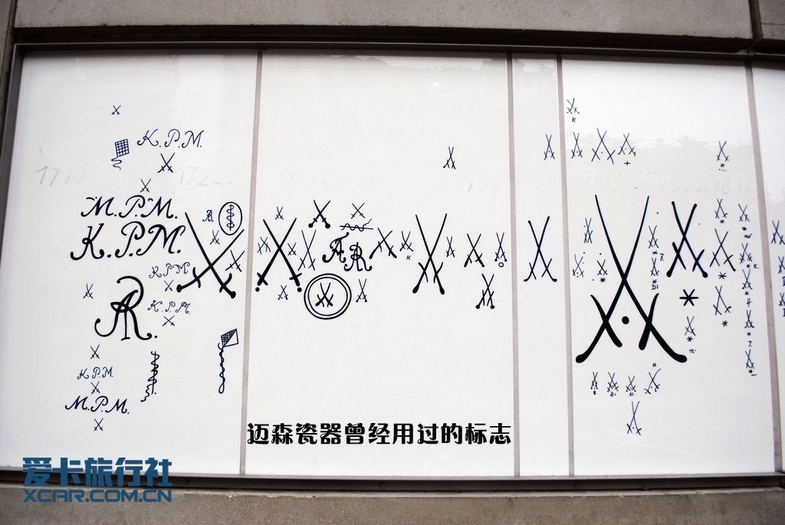 K.P.M.
1710
1722
M.P.M.
K.P.M.
AR
K.P.M.
K.P.M.
AR.
K.P.M.
M.P.M.
AR
AR
迈森瓷器曾经用过的标志
爱卡旅行社
XCAR.COM.CN